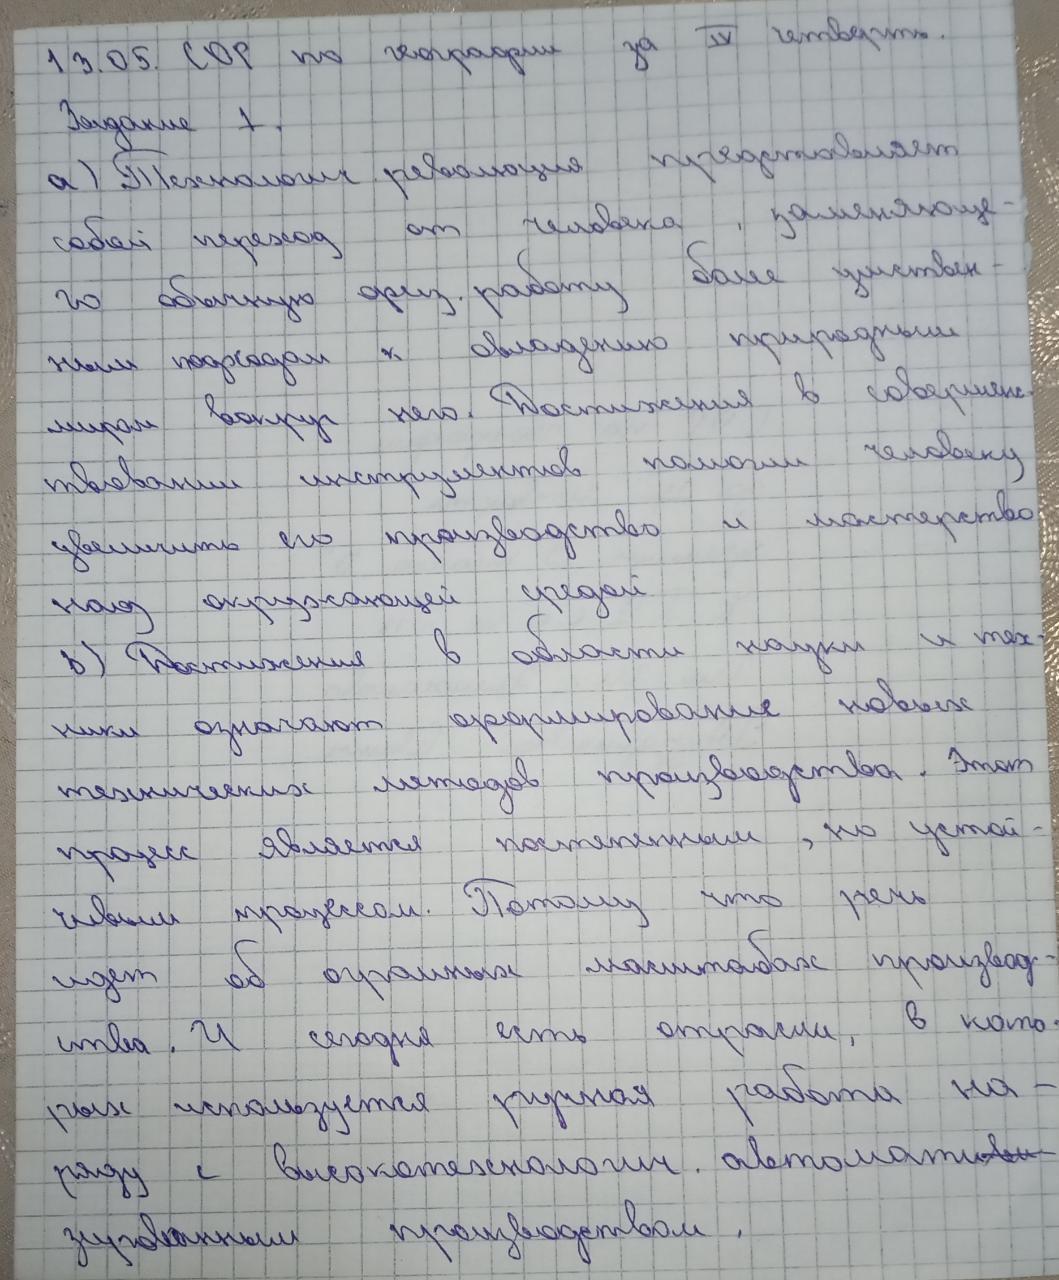 13.05. СОР по географии за IV четверть.
Задание 1.
а) Технологич. революция представляет
собой переход от человека, заменяюще-
го обычную физ. работу более умствен-
ным подходом к овладению природным
миром вокруг него. Достижения в совершенс-
твовании инструментов помогли человеку
увеличить его производство и мастерство
над окружающей средой
b) Достижения в области науки и тех-
ники означают формирование новых
технических методов производства. Этот
процесс является постепенным, но устой-
чивым процессом. Потому что речь
идет об огромных масштабах производ-
ства. И сегодня есть отрасли, в кото-
рых используется ручная работа на-
ряду с высокотехнологич. автомати
зированным производством.